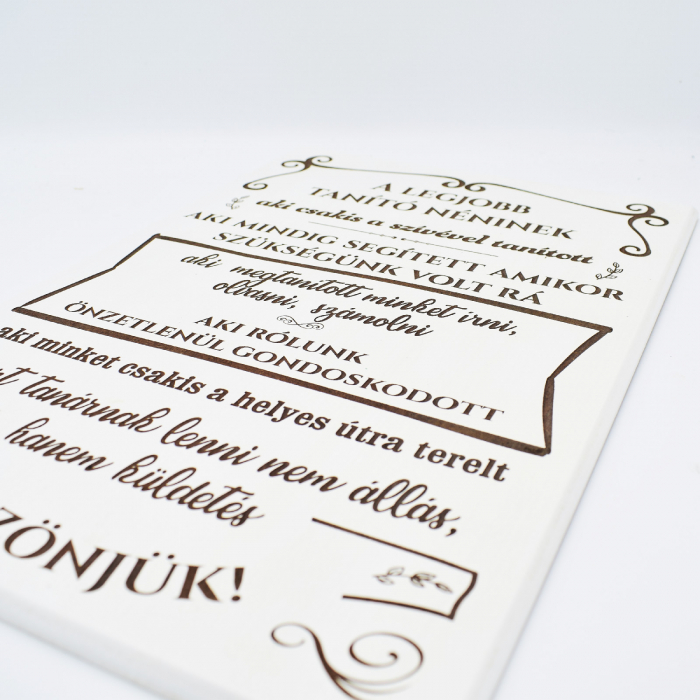 A LEGJOBB
TANÍTÓ NÉNINEK
aki csakis a szívével tanított
AKI MINDIG SEGÍTETT AMIKOR
SZÜKSÉGÜNK VOLT RÁ
aki megtanított minket írni,
olvasni, számolni
AKI RÓLUNK
ÖNZETLENÜL GONDOSKODOTT
aki minket csakis a helyes útra terelt
tanárnak lenni nem állás,
hanem küldetés
ZÖNJÜK!